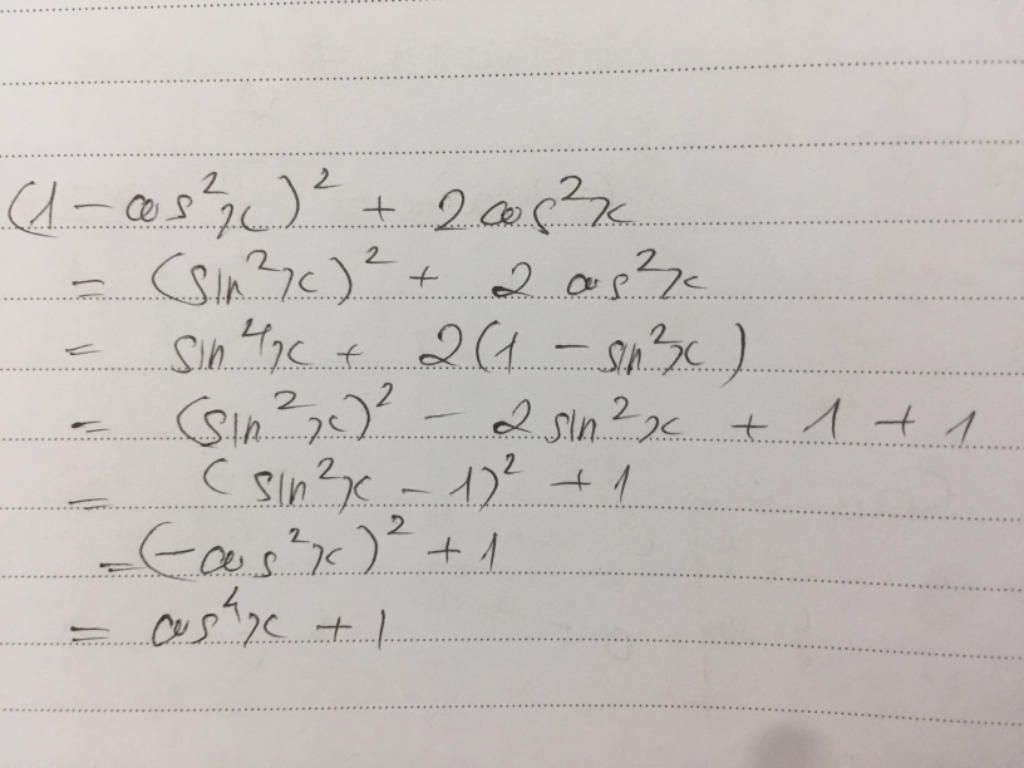 (1 - cos²x)² + 2 cos²x
= (sin²x)² + 2 cos²x
= sin⁴x + 2(1 - sin²x)
= (sin²x)² - 2 sin²x + 1 + 1
= (sin²x - 1)² + 1
= (-cos²x)² + 1
= cos⁴x + 1